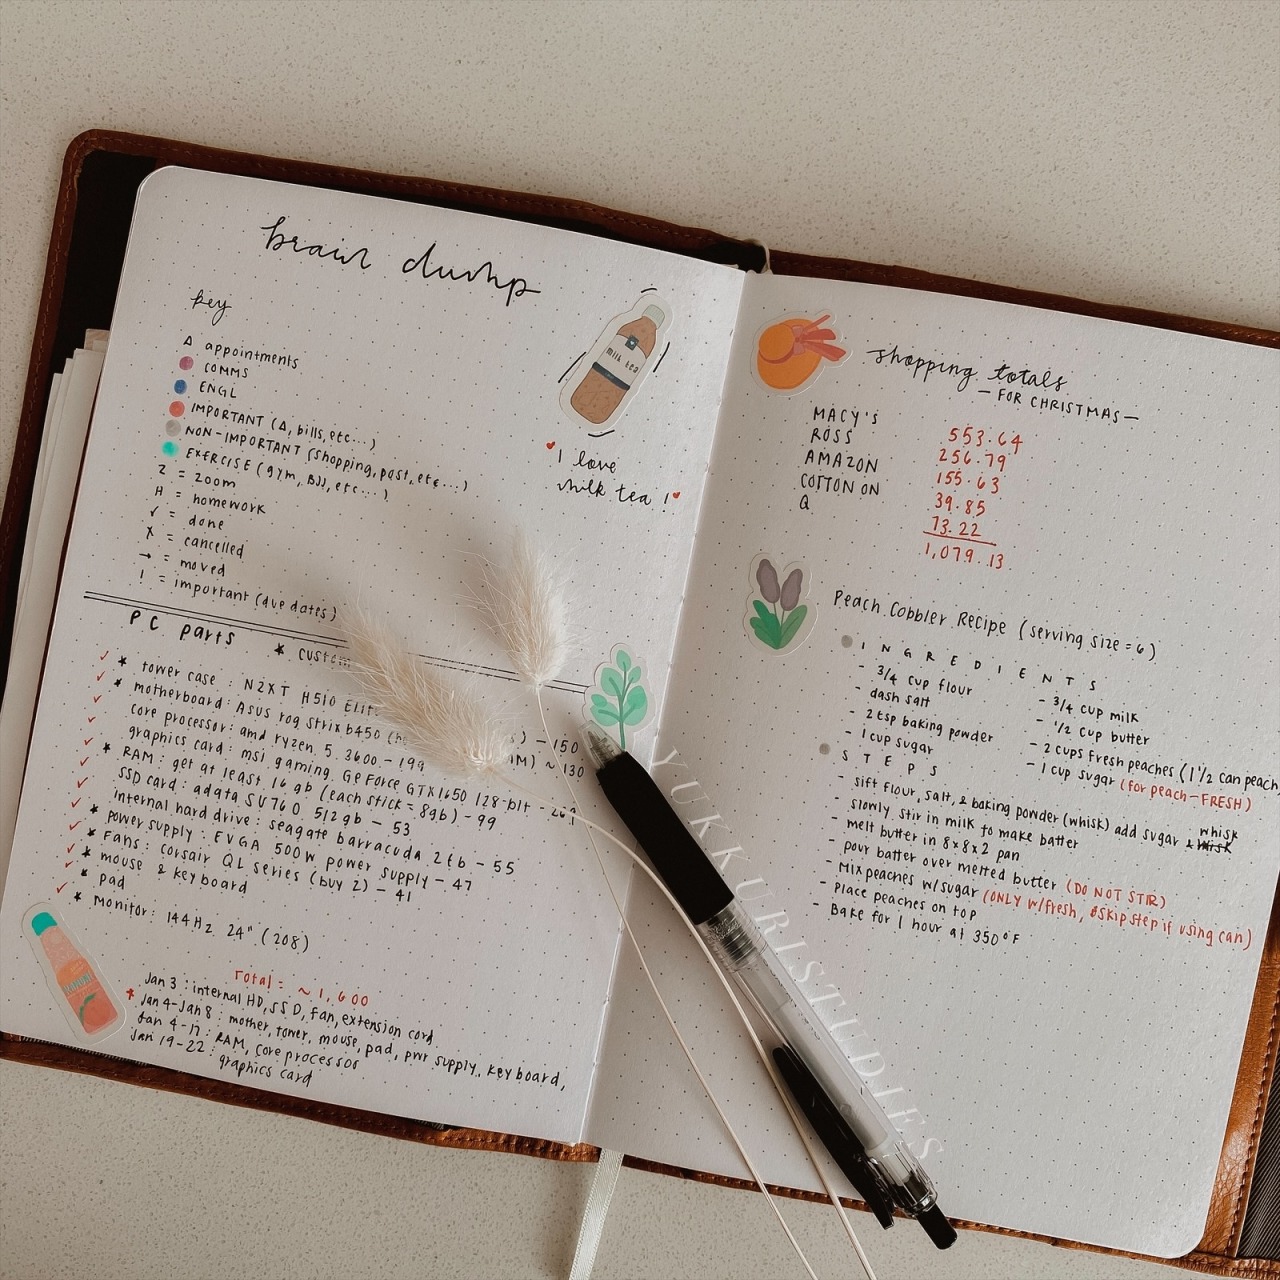 brain dump
key
Δ appointments
COMMS
ENGL
IMPORTANT (Δ, bills, etc...)
NON-IMPORTANT (shopping, past, etc...)
EXERCISE (gym, BJJ, etc...)
Z = zoom
H = homework
✓ = done
X = cancelled
→ = moved
! = important (due dates)
milk tea
I love
milk tea !
PC parts * custom
✓ * tower case : NZXT H510 Elit
✓ * motherboard: Asus rog strix b450 - 150
✓ core processor: amd ryzen 5 3600 - 199 ~ 130
✓ graphics card: msi gaming GeForce GTX1650 128-bit -
✓ * RAM: get at least 16 gb (each stick = 8gb) - 99
✓ SSD card: adata SU760 512gb - 53
✓ internal hard drive: seagate barracuda 2tb - 55
✓ * power supply : EVGA 500W power supply - 47
✓ * Fans: corsair QL series (buy 2) - 41
✓ * mouse & keyboard
✓ * pad
✓ * monitor: 144Hz 24" (208)
Total = ~ 1,600
Jan 3 : internal HD, SSD, fan, extension cord
* Jan 4-Jan 8 : mother, tower, mouse, pad, pwr supply, keyboard,
Jan 4-17 : RAM, core processor
Jan 19-22 : graphics card
shopping totals
- FOR CHRISTMAS -
MACY'S 553.64
ROSS 256.79
AMAZON 155.63
COTTON ON 39.85
Q 73.22
1,079.13
Peach Cobbler Recipe (serving size = 6)
INGREDIENTS
- 3/4 cup flour
- dash salt
- 2 tsp baking powder
- 1 cup sugar
- 3/4 cup milk
- 1/2 cup butter
- 2 cups fresh peaches (1 1/2 can peach
- 1 cup sugar (for peach-FRESH)
STEPS
- sift flour, salt, & baking powder (whisk) add sugar & whisk
- slowly stir in milk to make batter
- melt butter in 8x8x2 pan
- pour batter over melted butter (DO NOT STIR)
- Mix peaches w/sugar (ONLY w/fresh, skip step if using can)
- Place peaches on top
- Bake for 1 hour at 350°F
YUKKURISTUDIES